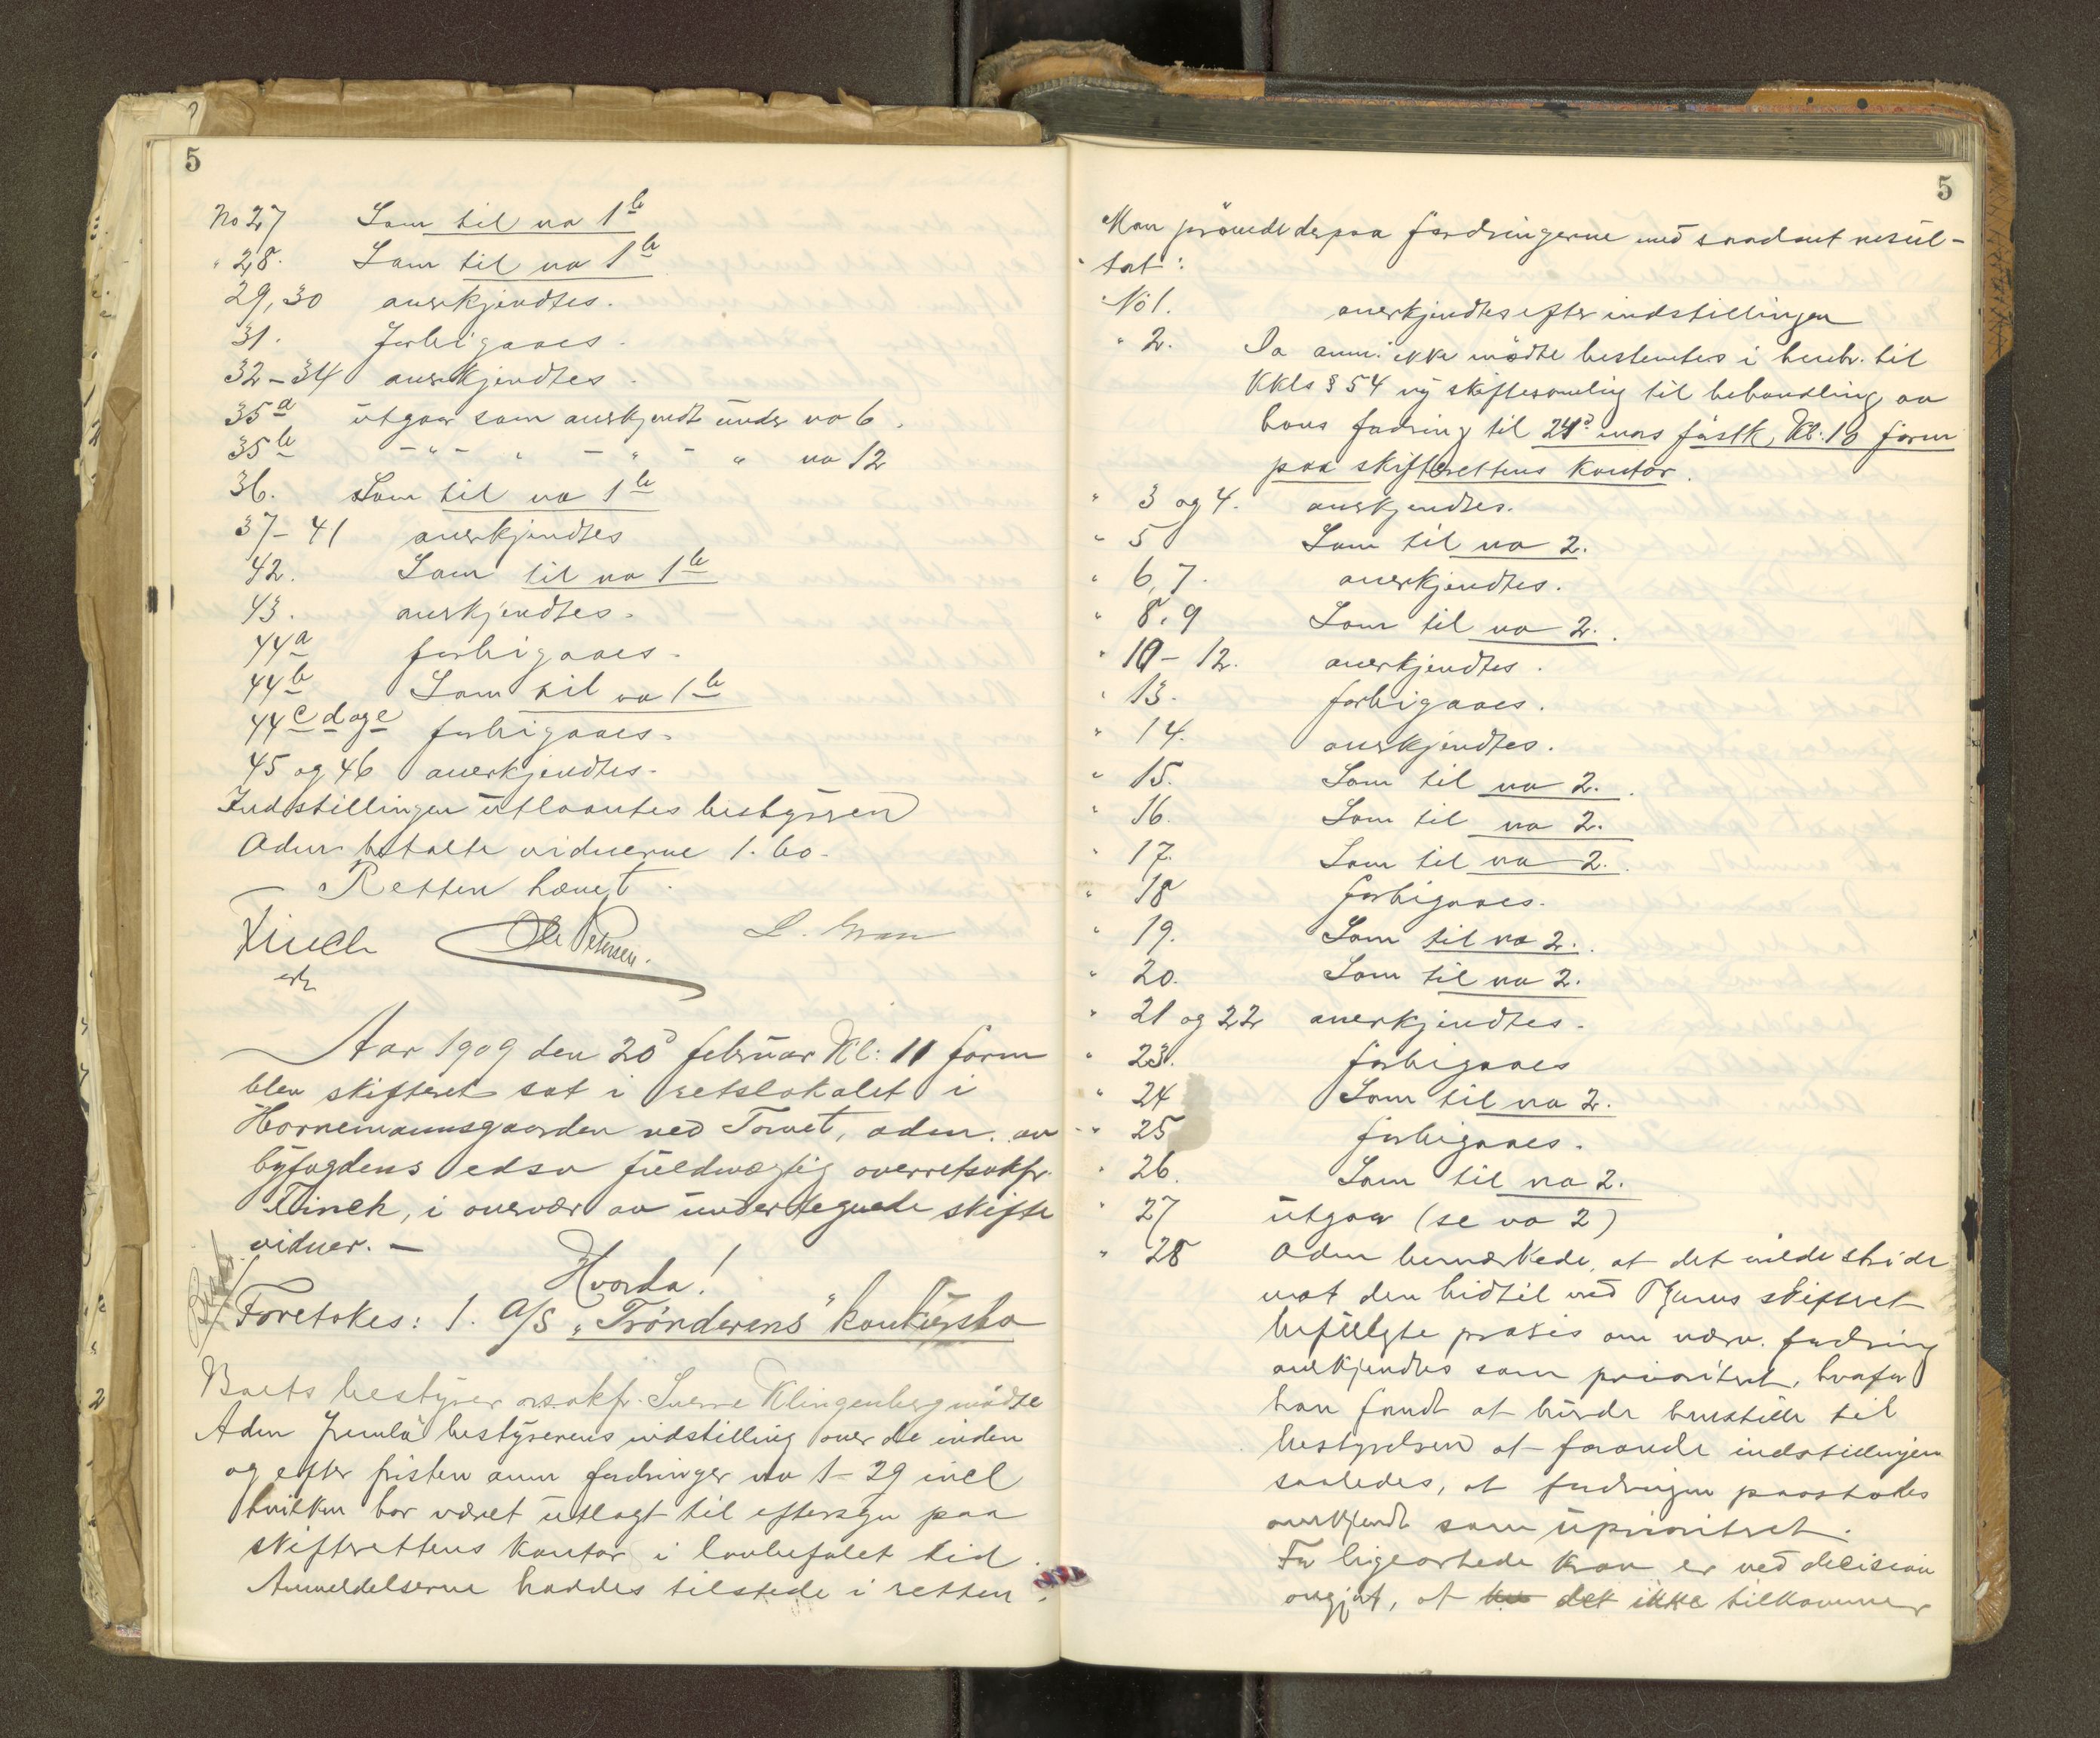 5
No 27 Som til no 1 b
" 28. Som til no 1 b
29, 30 anerkjendtes.
31. forbigaaes.
32-34 anerkjendtes.
35 a utgaar som anerkjendt under no 6.
35 b - " - " - " - " no 12
36. Som til no 1 b
37-41 anerkjendtes
42. Som til no 1 b
43. anerkjendtes.
44 a forbigaaes.
44 b Som til no 1 b
44 c d og e forbigaaes.
45 og 46 anerkjendtes.
Indstillingen utlaantes bestyreren
Adm betalte vidnerne 1.60.
Retten hævet.
Finch Ole Petersen. L. Gran
Aar 1909 den 20d februar Kl: 11 form
blev skifteret sat i retslokalet i
Hornemannsgaarden ved Torvet, adm. av
byfogdens edsv fuldmægtig overretssakfr.
Finch, i overvær av undertegnede skifte
vidner. -
Hvorda!
Foretokes: 1. A/S "Trønderens" konkursbo
Boets bestyrer orsakfr. Sverre Klingenberg mødte
Adm fremla bestyrerens indstilling over de inden
og efter fristen anm fordringer no 1-29 incl
hvilken har været utlagt til eftersyn paa
skifterettens kontor i lovbefalet tid.
Anmeldelserne havdes tilstede i retten.
5
Man prøvede derpaa fordringerne med saadant resul-
tat:
No 1. anerkjendtes efter indstillingen
" 2. Da anm. ikke mødte bestemtes i henh. til
KKls § 54 ny skiftesamling til behandling av
hans fodring til 24d mars førstk, Kl: 10 form
paa skifterettens kontor.
" 3 og 4. anerkjendtes.
" 5 Som til no 2.
" 6, 7. anerkjendtes.
" 8, 9 Som til no 2.
" 10-12. anerkjendtes.
" 13. forbigaaes.
" 14. anerkjendtes.
" 15. Som til no 2.
" 16. Som til no 2.
" 17. Som til no 2.
" 18 forbigaaes.
" 19. Som til no 2.
" 20. Som til no 2.
" 21 og 22 anerkjendtes.
" 23. forbigaaes
" 24 Som til no 2.
" 25 forbigaaes.
" 26. Som til no 2.
" 27 utgaar (se no 2)
" 28 Adm bemærkede, at det vilde stride
mot den hidtil ved Tjems skifteret
befulgte praxis om nærv. fodring
anerkjendtes som prioritert, hvorfor
han fandt at burde henstille til
bestyrelsen at forandre indstillingen
saaledes, at fodringen paastodes
anerkjendt som uprioritert.
For ligeartede krav er ved decision
avgjort, at det ikke tilkommer